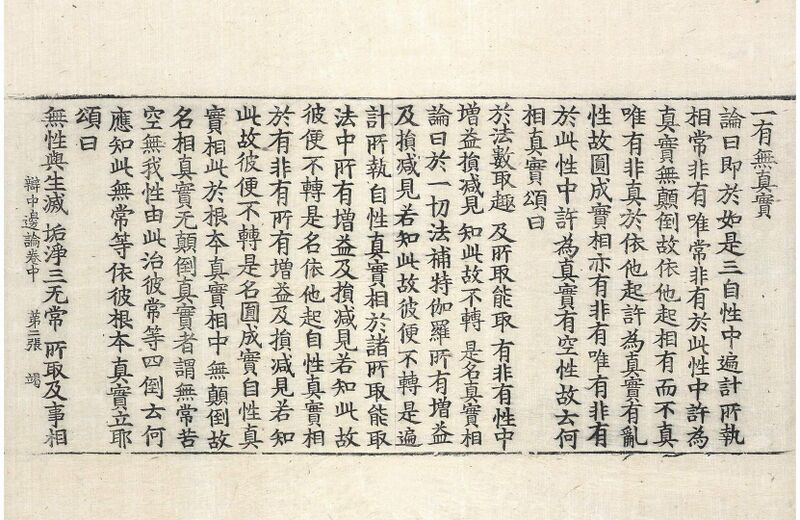 一有無真實
論曰即於如是三自性中遍計所執
相常非有唯常非有於此性中許為
真實無顛倒故依他起相有而不真
唯有非真於依他起許為真實有亂
性故圓成實相亦有非有唯有非有
於此性中許為真實有空性故云何
相真實頌曰
於法數取趣 及所取能取 有非有性中
增益損減見 知此故不轉 是名真實相
論曰於一切法補特伽羅所有增益
及損減見若知此故彼便不轉是遍
計所執自性真實相於諸所取能取
法中所有增益及損減見若知此故
彼便不轉是名依他起自性真實相
於有非有所有增益及損減見若知
此故彼便不轉是名圓成實自性真
實相此於根本真實相中無顛倒故
名相真實无顛倒真實者謂無常苦
空無我性由此治彼常等四倒云何
應知此無常等依彼根本真實立耶
頌曰
無性與生滅 垢淨三无常 所取及事相
辯中邊論卷中 第二張 竭